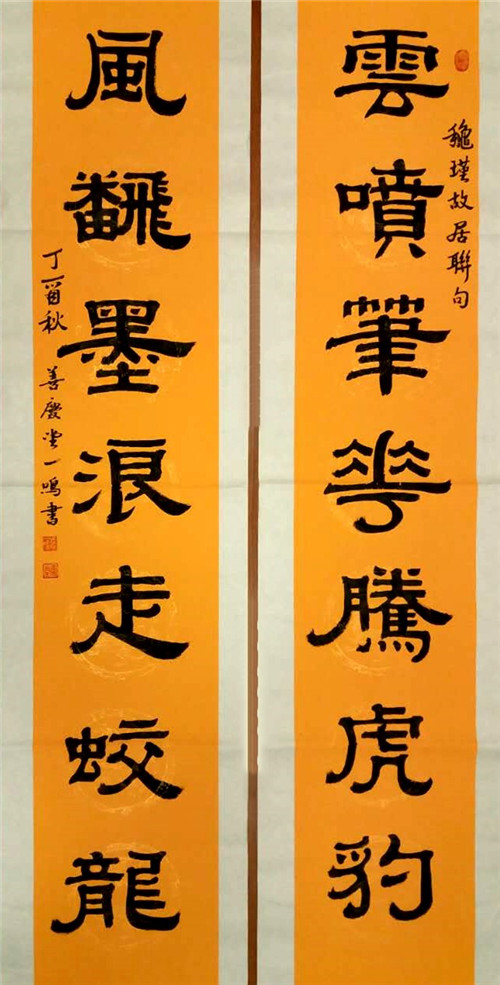 雲噴筆花騰虎豹
龝瑾故居聯句
風飜墨浪走蛟龍
丁酉秋 善慶堂一鳴書